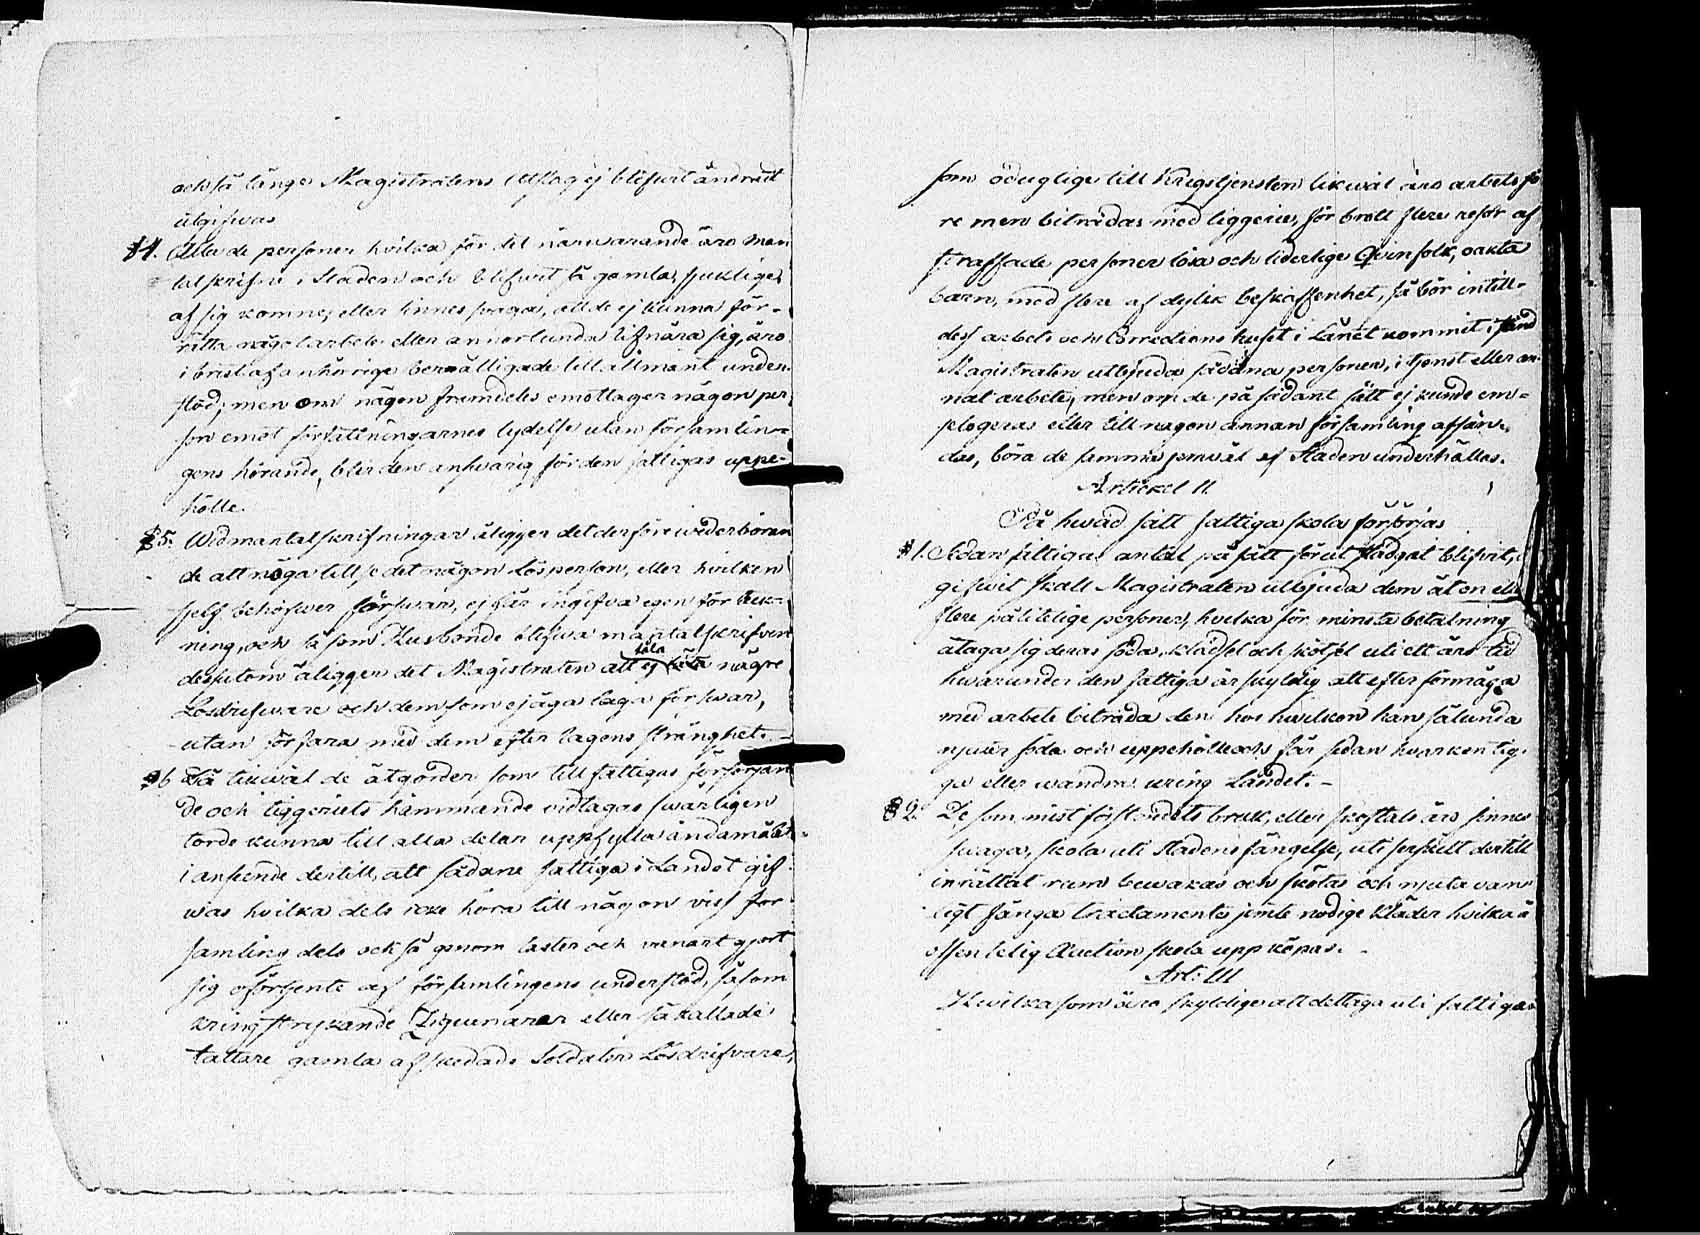 och så länge Magistratens Utslag ej blifvit ändradt
utgifvas
§4. Alla de personer hvilka för det närwarande äro man
talskrifne i Staden och blifvit så gamla, sjuklige,
af sig komne, eller sinnes svaga, att de ej kunna för-
rätta något arbete eller annorlunda lifnära sig, äro
i brist af anhörige berättigade till allmänt under-
stöd; men om någon framdeles emottager någon per
son emot författningarnes lydelse utan församlin-
gens hörande, blir den answarig för den fattigas uppe-
hälle.
§5. Wid mantalskrifningar åligger det derföre wederböran
de att noga tillse det någon Lösperson, eller hvilken
sjelf behöfwer förswar, ej får ingifva egen för teck-
ning, och så som Husbonde blifwa mantalskrifven
dessutom åligger det Magistraten att ej tåla någre
Lösdrifware och dem som ej äga laga förswar,
utan förfara med dem efter lagens stränghet. -
§6 Då likwäl de åtgörder som till fattigas försörjan
de och tiggeriets hämmande vidtagas swårligen
torde kunna till alla delar uppfylla ändamålet
i anseende dertill, att sådane fattiga i Landet gif
was hvilka dels icke höra till någon viss för
samling dels ock så genom laster och vanart gjort
sig oförtjente af församlingens understöd, såsom
kringstrykande Ziguenarer eller så kallade
tattare gamla afskedade Soldater Lösdrifvare,
som oduglige till Krigstjensten likwäl äro arbetsfö
re men biträdas med tiggerie, för brott flere resor af
straffade personer lösa och liderlige Qvinfolk, oäkta
barn, med flere af dylik beskaffenhet, så bör intill-
dess arbets och Corrections huset i Länet kommit i stånd
Magistraten utbjuda sådana personer, i tjenst eller an-
nat arbete, men om de på sådant sätt ej kunde em-
plogeras eller till någon annan församling affär-
das, böra de samma jemwäl af Staden underhållas.
Artickel II.
På hwad sätt fattiga skola försörjas
§1. Sedan fattigas antal på sätt förut stadgat blifvit,
gifwit skall Magistraten utbjuda dem åt en elle
flere pålitelige personer, hvilka för minsta betalning
åtaga sig deras föda, klädsel och skötsel uti ett års tid
hwarunder den fattiga är skyldig att efter förmåga
med arbete biträda den hos hwilken han sålunda
njuter föda och uppehälle och får sedan hvarken tig-
ga eller wandra kring Landet. -
§2. De som mist förståndets bruk, eller skeftals äro sinnes
swaga, skola uti Stadens fängelse, uti serskilt dertill
inrättat rum bewakas och skötas och njuta van
ligt fånga tractamente jemte nödige kläder hvilka å
offentelig Auction skola uppköpas. -
Art: III
Hwilka som äro skyldige att deltaga uti fattigas